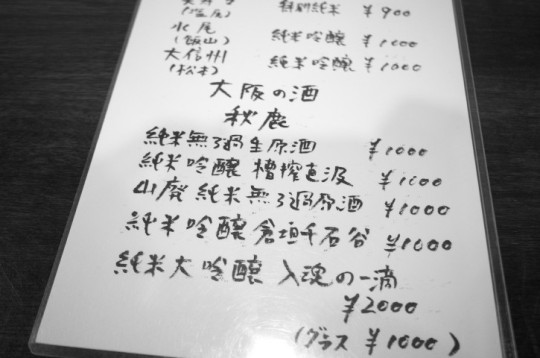 (塩尻) 特別純米 ¥900
水尾 純米吟醸 ¥1000
(飯山)
大信州 純米吟醸 ¥1000
(松本)
大阪の酒
秋鹿
純米無ろ過生原酒 ¥1000
純米吟醸 槽搾直汲 ¥1100
山廃純米無ろ過原酒 ¥1000
純米吟醸倉垣千石谷 ¥1000
純米大吟醸 入魂の一滴
¥2000
(グラス ¥1000)